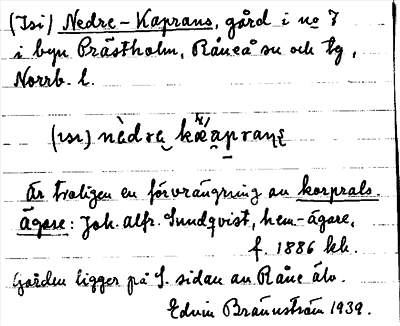 (Isi) Nedre-Kaprans, gård i no 7
i byn Prästholm, Råneå sn och tg,
Norrb. l.
Är troligen en förvrängning av korprals.
Ägare: Joh. Alfr. Sundqvist, hem.-ägare,
f. 1886 hh.
Gården ligger på S. sidan av Råne älv.
Edvin Brännström 1939.